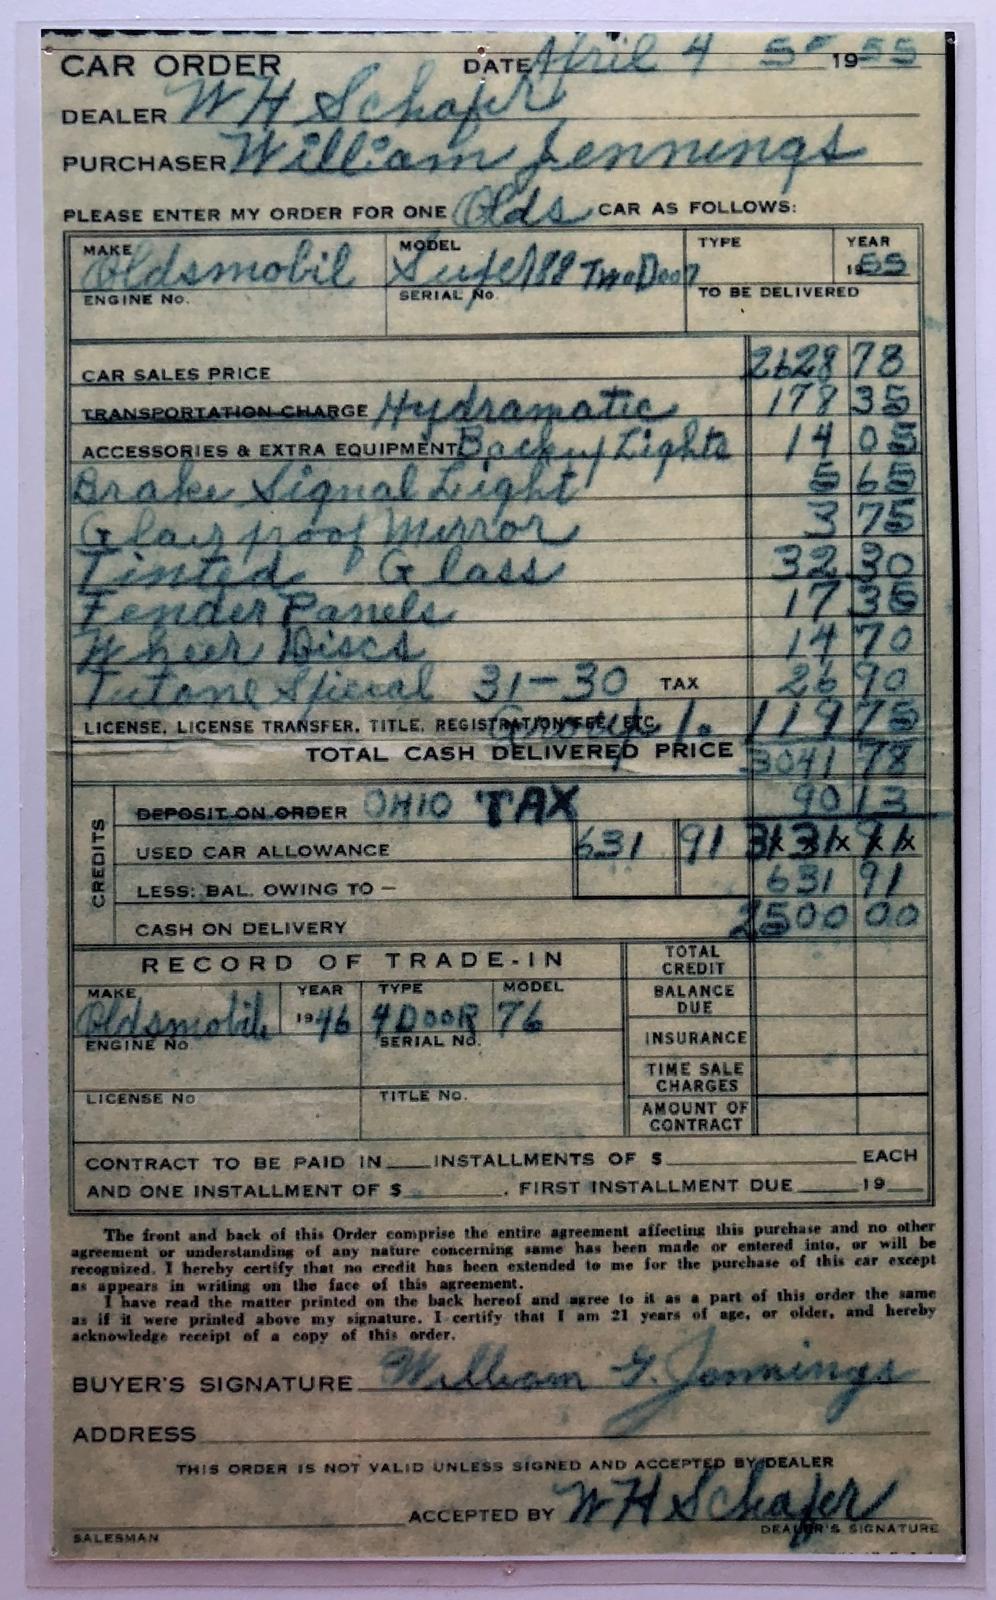 CAR ORDER DATE April 4 5" 1955
DEALER W H Schafer
PURCHASER William Jennings
PLEASE ENTER MY ORDER FOR ONE Olds CAR AS FOLLOWS:
MAKE MODEL TYPE YEAR
Oldsmobil Super 88 Two Door 1955
ENGINE No. SERIAL No. TO BE DELIVERED
CAR SALES PRICE 2628 78
TRANSPORTATION CHARGE Hydramatic 178 35
ACCESSORIES & EXTRA EQUIPMENT Backup Lights 14 05
Brake Signal Light 5 65
Glair proof Mirror 3 75
Tinted Glass 32 30
Fender Panels 17 35
Wheer Discs 14 70
Tutone Spieal 31-30 TAX 26 90
LICENSE, LICENSE TRANSFER, TITLE, REGISTRATION FEE, ETC. 1. 119 75
TOTAL CASH DELIVERED PRICE 3041 78
CREDITS
DEPOSIT ON ORDER OHIO TAX 90 13
USED CAR ALLOWANCE 631 91 3131 91
LESS: BAL. OWING TO — 631 91
CASH ON DELIVERY 2500 00
RECORD OF TRADE-IN TOTAL CREDIT
MAKE YEAR TYPE MODEL BALANCE DUE
Oldsmobil 1946 4 DOOR 76
ENGINE No. SERIAL No. INSURANCE
TIME SALE CHARGES
LICENSE No TITLE No. AMOUNT OF CONTRACT
CONTRACT TO BE PAID IN ___ INSTALLMENTS OF $ ___ EACH
AND ONE INSTALLMENT OF $ ___. FIRST INSTALLMENT DUE ___ 19 ___
The front and back of this Order comprise the entire agreement affecting this purchase and no other
agreement or understanding of any nature concerning same has been made or entered into, or will be
recognized. I hereby certify that no credit has been extended to me for the purchase of this car except
as appears in writing on the face of this agreement.
I have read the matter printed on the back hereof and agree to it as a part of this order the same
as if it were printed above my signature. I certify that I am 21 years of age, or older, and hereby
acknowledge receipt of a copy of this order.
BUYER'S SIGNATURE William G. Jennings
ADDRESS
THIS ORDER IS NOT VALID UNLESS SIGNED AND ACCEPTED BY DEALER
ACCEPTED BY W H Schafer
SALESMAN DEALER'S SIGNATURE